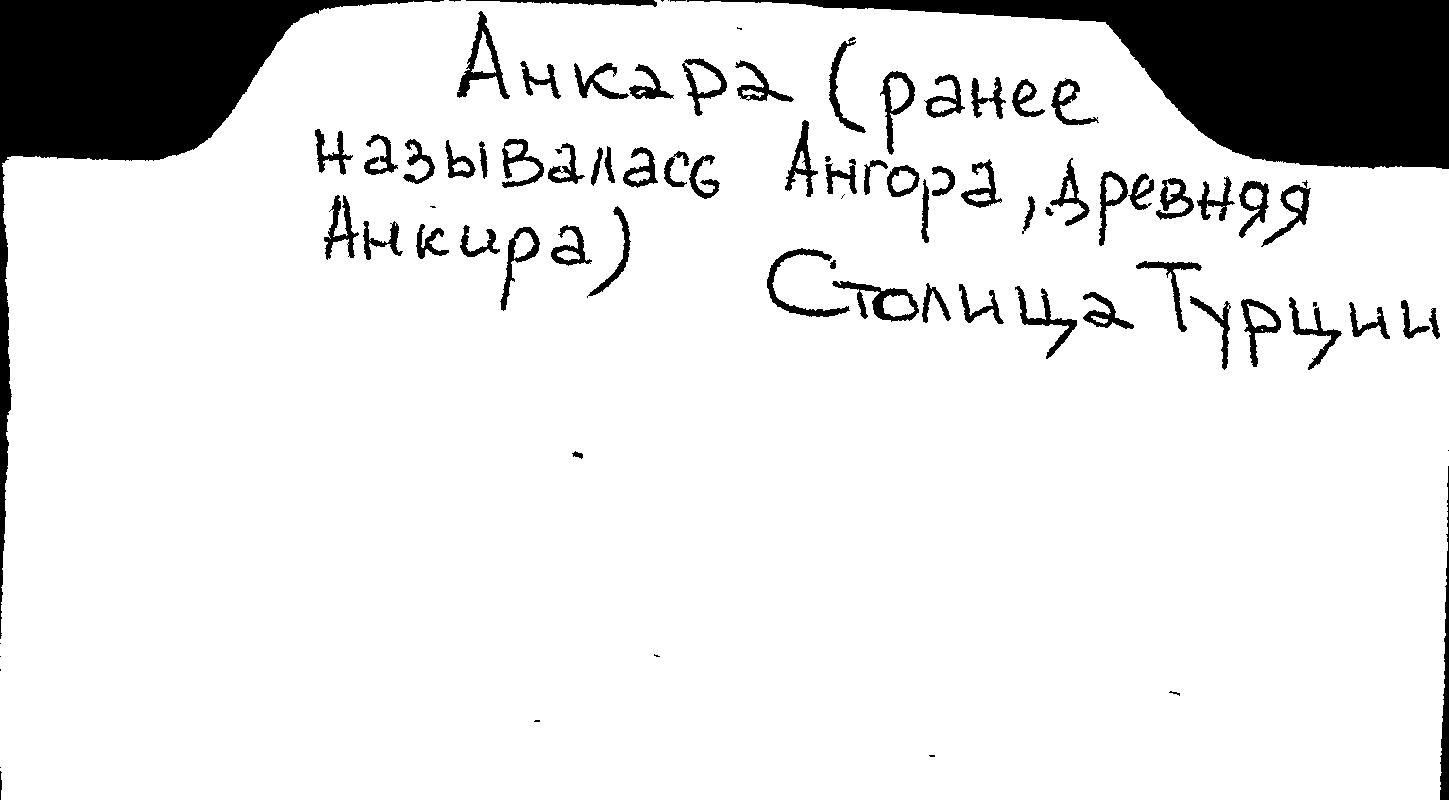 Анкара (ранее
называлась Ангора, древняя
Анкира)
Столица Турции